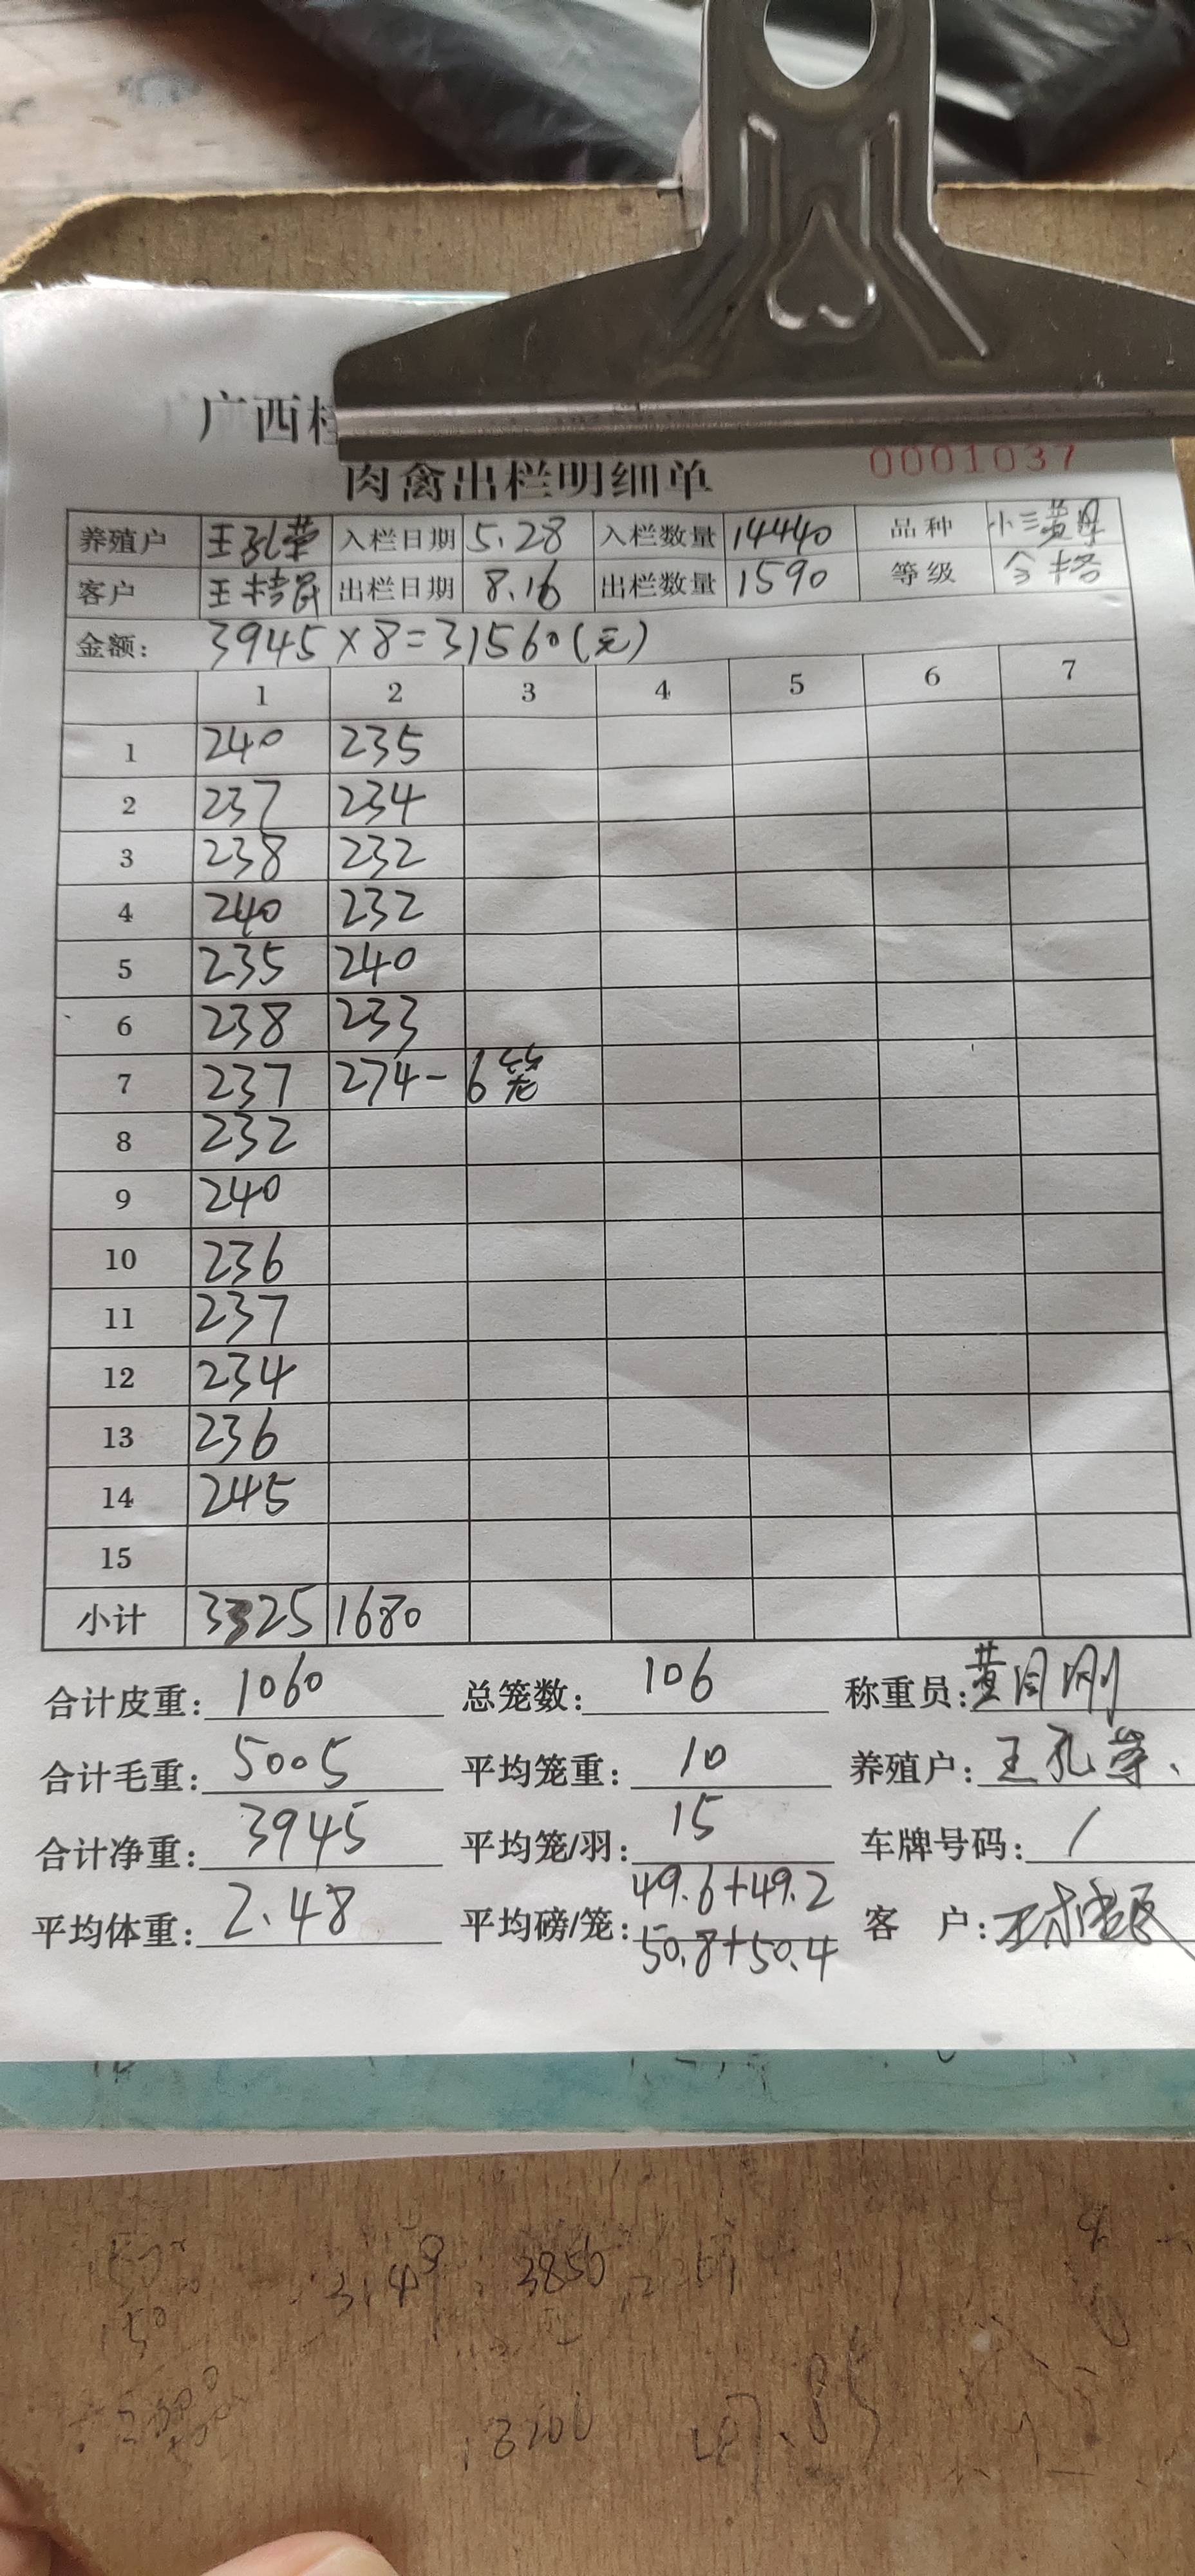 广西桂
0001037
肉禽出栏明细单
养殖户 王孔荣 入栏日期 5.28 入栏数量 14440 品种 小三黄母
客户 出栏日期 8.16 出栏数量 1590 等级 合格
金额: 3945×8=31560(元)
1 2 3 4 5 6 7
1 240 235
2 237 234
3 238 232
4 240 232
5 235 240
6 238 233
7 237 274- 6笼
8 232
9 240
10 236
11 237
12 234
13 236
14 245
15
小计 3325 1680
合计皮重: 1060 总笼数: 106 称重员:
合计毛重: 5005 平均笼重: 10 养殖户: 王孔荣
合计净重: 3945 平均笼/羽: 15 车牌号码: /
平均体重: 2.48 平均磅/笼: 49.6+49.2 客 户:
50.8+50.4
3850